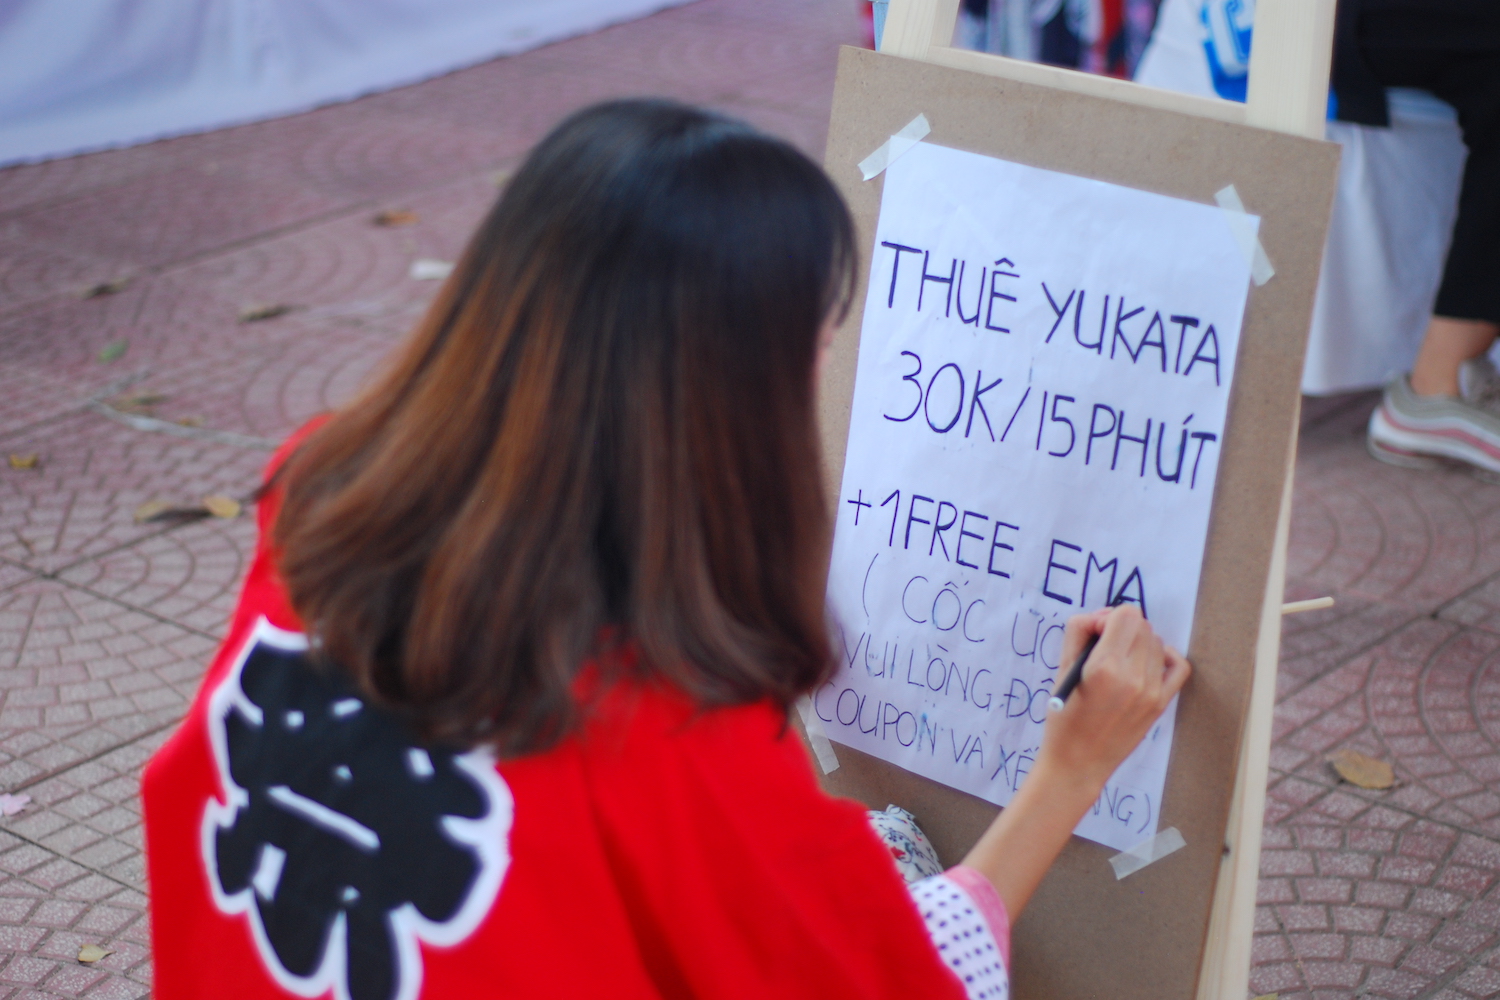 THUÊ YUKATA
30K/15 PHÚT
+1 FREE EMA
( CỐC
VUI LÒNG
COUPON VÀ
祭